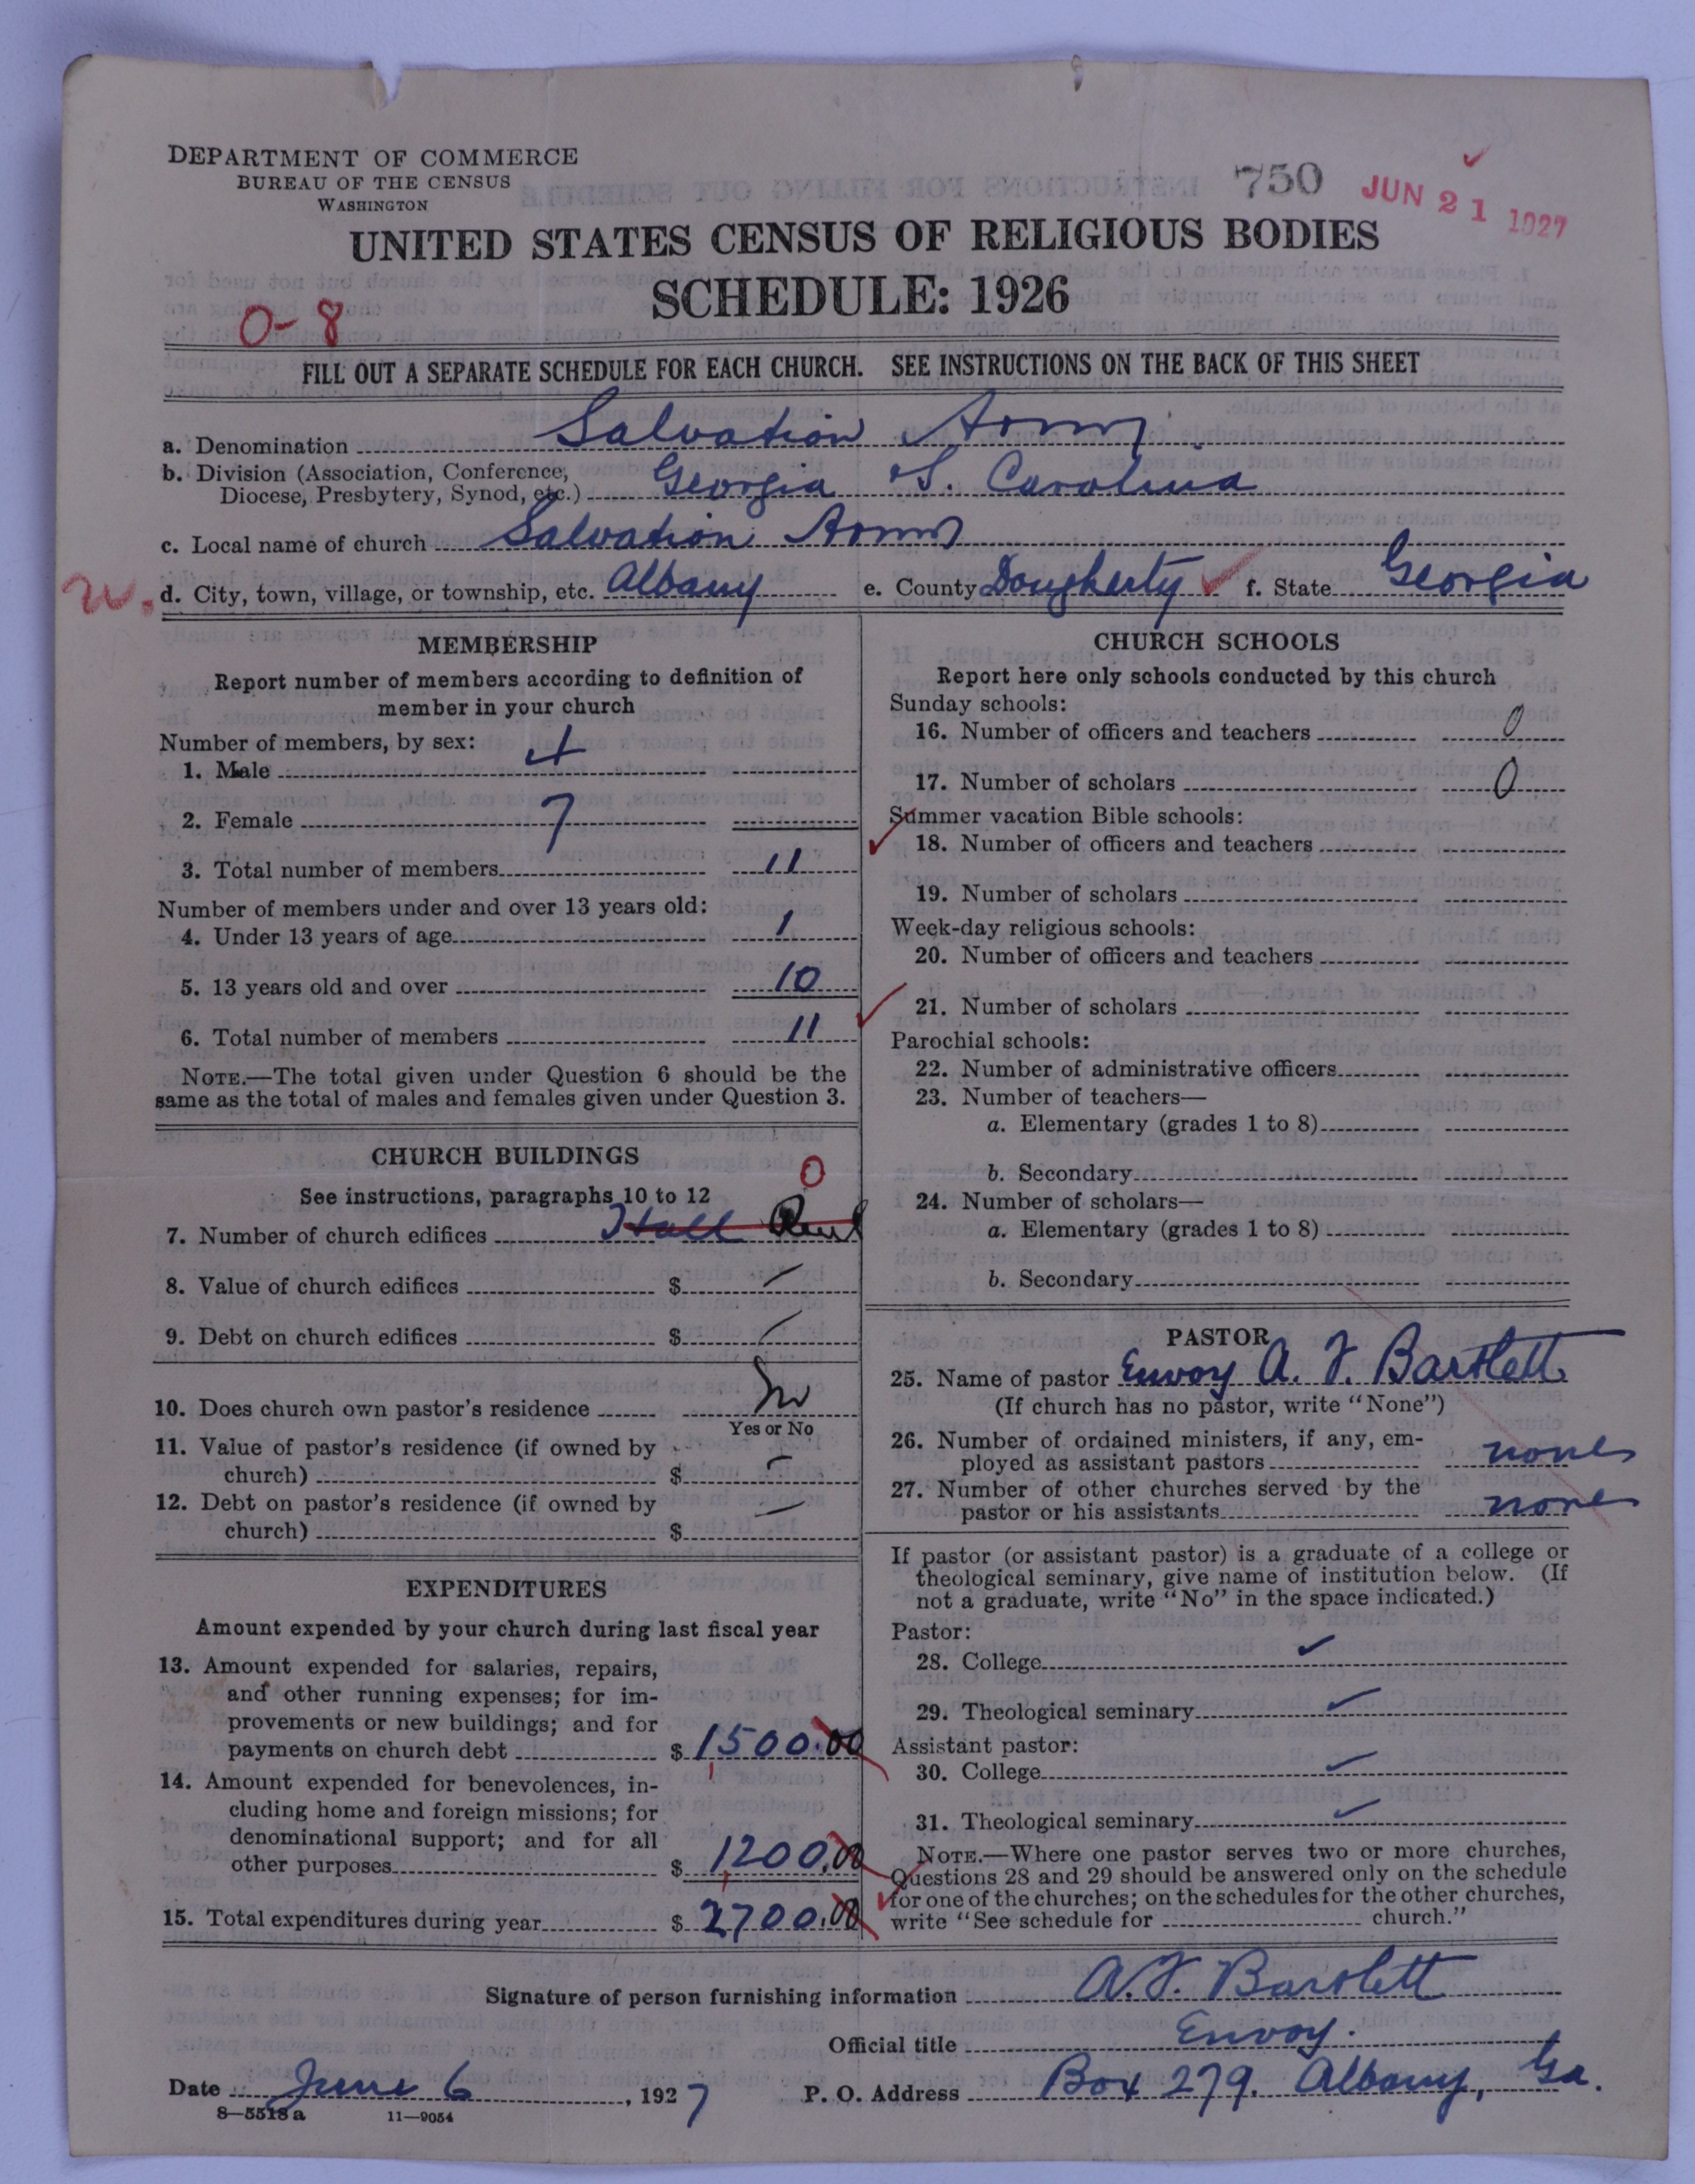 DEPARTMENT OF COMMERCE
BUREAU OF THE CENSUS
WASHINGTON
750
JUN 21 1927
UNITED STATES CENSUS OF RELIGIOUS BODIES
SCHEDULE: 1926
0-8
FILL OUT A SEPARATE SCHEDULE FOR EACH CHURCH. SEE INSTRUCTIONS ON THE BACK OF THIS SHEET
a. Denomination Salvation Army
b. Division (Association, Conference,
Diocese, Presbytery, Synod, etc.) Georgia & S. Carolina
c. Local name of church Salvation Army
d. City, town, village, or township, etc. Albany e. County Dougherty f. State Georgia
MEMBERSHIP
Report number of members according to definition of
member in your church
Number of members, by sex:
1. Male 4
2. Female 7
3. Total number of members 11
Number of members under and over 13 years old:
4. Under 13 years of age 1
5. 13 years old and over 10
6. Total number of members 11
NOTE.—The total given under Question 6 should be the
same as the total of males and females given under Question 3.
CHURCH BUILDINGS
See instructions, paragraphs 10 to 12 0
7. Number of church edifices Hall Rent
8. Value of church edifices $ —
9. Debt on church edifices $ —
10. Does church own pastor's residence No
Yes or No
11. Value of pastor's residence (if owned by
church) $ —
12. Debt on pastor's residence (if owned by
church) $ —
EXPENDITURES
Amount expended by your church during last fiscal year
13. Amount expended for salaries, repairs,
and other running expenses; for im-
provements or new buildings; and for
payments on church debt $ 1500.00
14. Amount expended for benevolences, in-
cluding home and foreign missions; for
denominational support; and for all
other purposes $ 1200.00
15. Total expenditures during year $ 2700.00
CHURCH SCHOOLS
Report here only schools conducted by this church
Sunday schools:
16. Number of officers and teachers 0
17. Number of scholars 0
Summer vacation Bible schools:
18. Number of officers and teachers
19. Number of scholars
Week-day religious schools:
20. Number of officers and teachers
21. Number of scholars
Parochial schools:
22. Number of administrative officers
23. Number of teachers—
a. Elementary (grades 1 to 8)
b. Secondary
24. Number of scholars—
a. Elementary (grades 1 to 8)
b. Secondary
PASTOR
25. Name of pastor Envoy A. F. Bartlett
(If church has no pastor, write "None")
26. Number of ordained ministers, if any, em-
ployed as assistant pastors none
27. Number of other churches served by the
pastor or his assistants none
If pastor (or assistant pastor) is a graduate of a college or
theological seminary, give name of institution below. (If
not a graduate, write "No" in the space indicated.)
Pastor:
28. College
29. Theological seminary
Assistant pastor:
30. College
31. Theological seminary
NOTE.—Where one pastor serves two or more churches,
Questions 28 and 29 should be answered only on the schedule
for one of the churches; on the schedules for the other churches,
write "See schedule for church."
Signature of person furnishing information A. F. Bartlett
Official title Envoy.
Date June 6, 1927 P. O. Address Box 279. Albany, Ga.
8—5518 a 11—9054